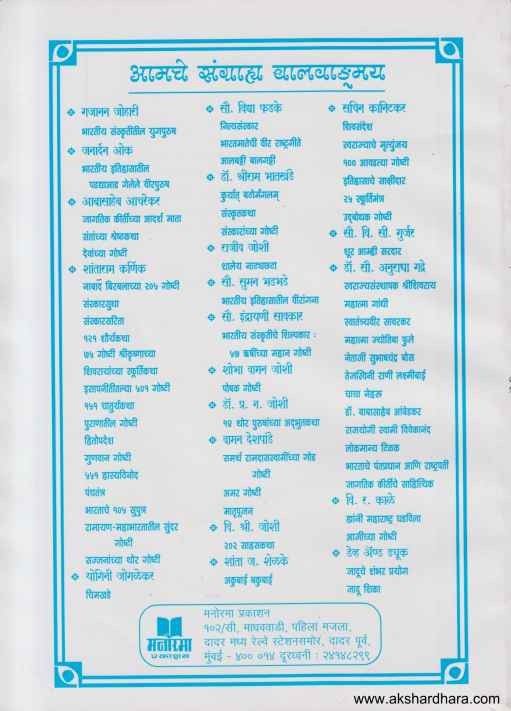 आमचे संग्राह्य बालवाङ्मय
❖ गजानन जोहारी
भारतीय संस्कृतीतील युगपुरुष
❖ जनार्दन ओक
भारतीय इतिहासातील
पडद्याआड गेलेले वीरपुरुष
❖ आबासाहेब आचरेकर
जागतिक कीर्तीच्या आदर्श माता
संतांच्या श्रेष्ठकथा
देवांच्या गोष्टी
❖ शांताराम कर्णिक
नाबाद बिरबलाच्या २०५ गोष्टी
संस्कारसुधा
संस्कारसरिता
१२१ शौर्यकथा
७५ गोष्टी श्रीकृष्णाच्या
शिवरायांच्या स्फूर्तिकथा
इसापनीतीतल्या ५०१ गोष्टी
१५१ चातुर्यकथा
पुराणातील गोष्टी
हितोपदेश
गुणवान गोष्टी
५५१ हास्यविनोद
पंचतंत्र
भारताचे १०५ सुपुत्र
रामायण-महाभारतातील सुंदर
गोष्टी
सज्जनांच्या थोर गोष्टी
❖ योगिनी जोगळेकर
चिमखडे
❖ सौ. विद्या फडके
नित्यसंस्कार
भारतमातेची वीर राष्ट्रगीते
आलबट्टी बालगट्टी
❖ डॉ. श्रीराम भातखंडे
कुर्यात् बटोर्मंगलम्
संस्कृतकथा
संस्कारांच्या गोष्टी
❖ राजीव जोशी
शालेय नाट्यछटा
❖ सौ. सुमन भडभडे
भारतीय इतिहासातील वीरांगना
❖ सौ. इंद्रायणी सावकार
भारतीय संस्कृतीचे शिल्पकार :
५७ ऋषींच्या महान गोष्टी
❖ शोभा वामन जोशी
पोषक गोष्टी
❖ डॉ. प्र. न. जोशी
१४ थोर पुरुषांच्या अद्भुतकथा
❖ वामन देशपांडे
समर्थ रामदासस्वामींच्या गोड
गोष्टी
अमर गोष्टी
मातृपूजन
❖ वि. श्री. जोशी
२०२ साहसकथा
❖ शांता ज. शेळके
अकुबाई बकुबाई
❖ सचिन कानिटकर
शिवसंदेश
स्वराज्याचे मृत्युंजय
१०० आवडत्या गोष्टी
इतिहासाचे साक्षीदार
२५ स्फूर्तिमंत्र
उद्बोधक गोष्टी
❖ सौ. वि. सी. गुर्जर
शूर आम्ही सरदार
❖ डॉ. सौ. अनुराधा गद्रे
स्वराज्यसंस्थापक श्रीशिवराय
महात्मा गांधी
स्वातंत्र्यवीर सावरकर
महात्मा ज्योतिबा फुले
नेताजी सुभाषचंद्र बोस
तेजस्विनी राणी लक्ष्मीबाई
चाचा नेहरू
डॉ. बाबासाहेब आंबेडकर
राजयोगी स्वामी विवेकानंद
लोकमान्य टिळक
भारताचे पंतप्रधान आणि राष्ट्रपती
जागतिक कीर्तीचे साहित्यिक
❖ वि. र. काळे
ह्यांनी महाराष्ट्र घडविला
आजीच्या गोष्टी
❖ डेव्ह ॲण्ड ड्यूक
जादूचे शंभर प्रयोग
जादू शिका
मनोरमा
प्रकाशन
मनोरमा प्रकाशन
१०२/सी, माधववाडी, पहिला मजला,
दादर मध्य रेल्वे स्टेशनसमोर, दादर पूर्व,
मुंबई - ४०० ०१४ दूरध्वनी : २४१४८२९९
www.akshardhara.com